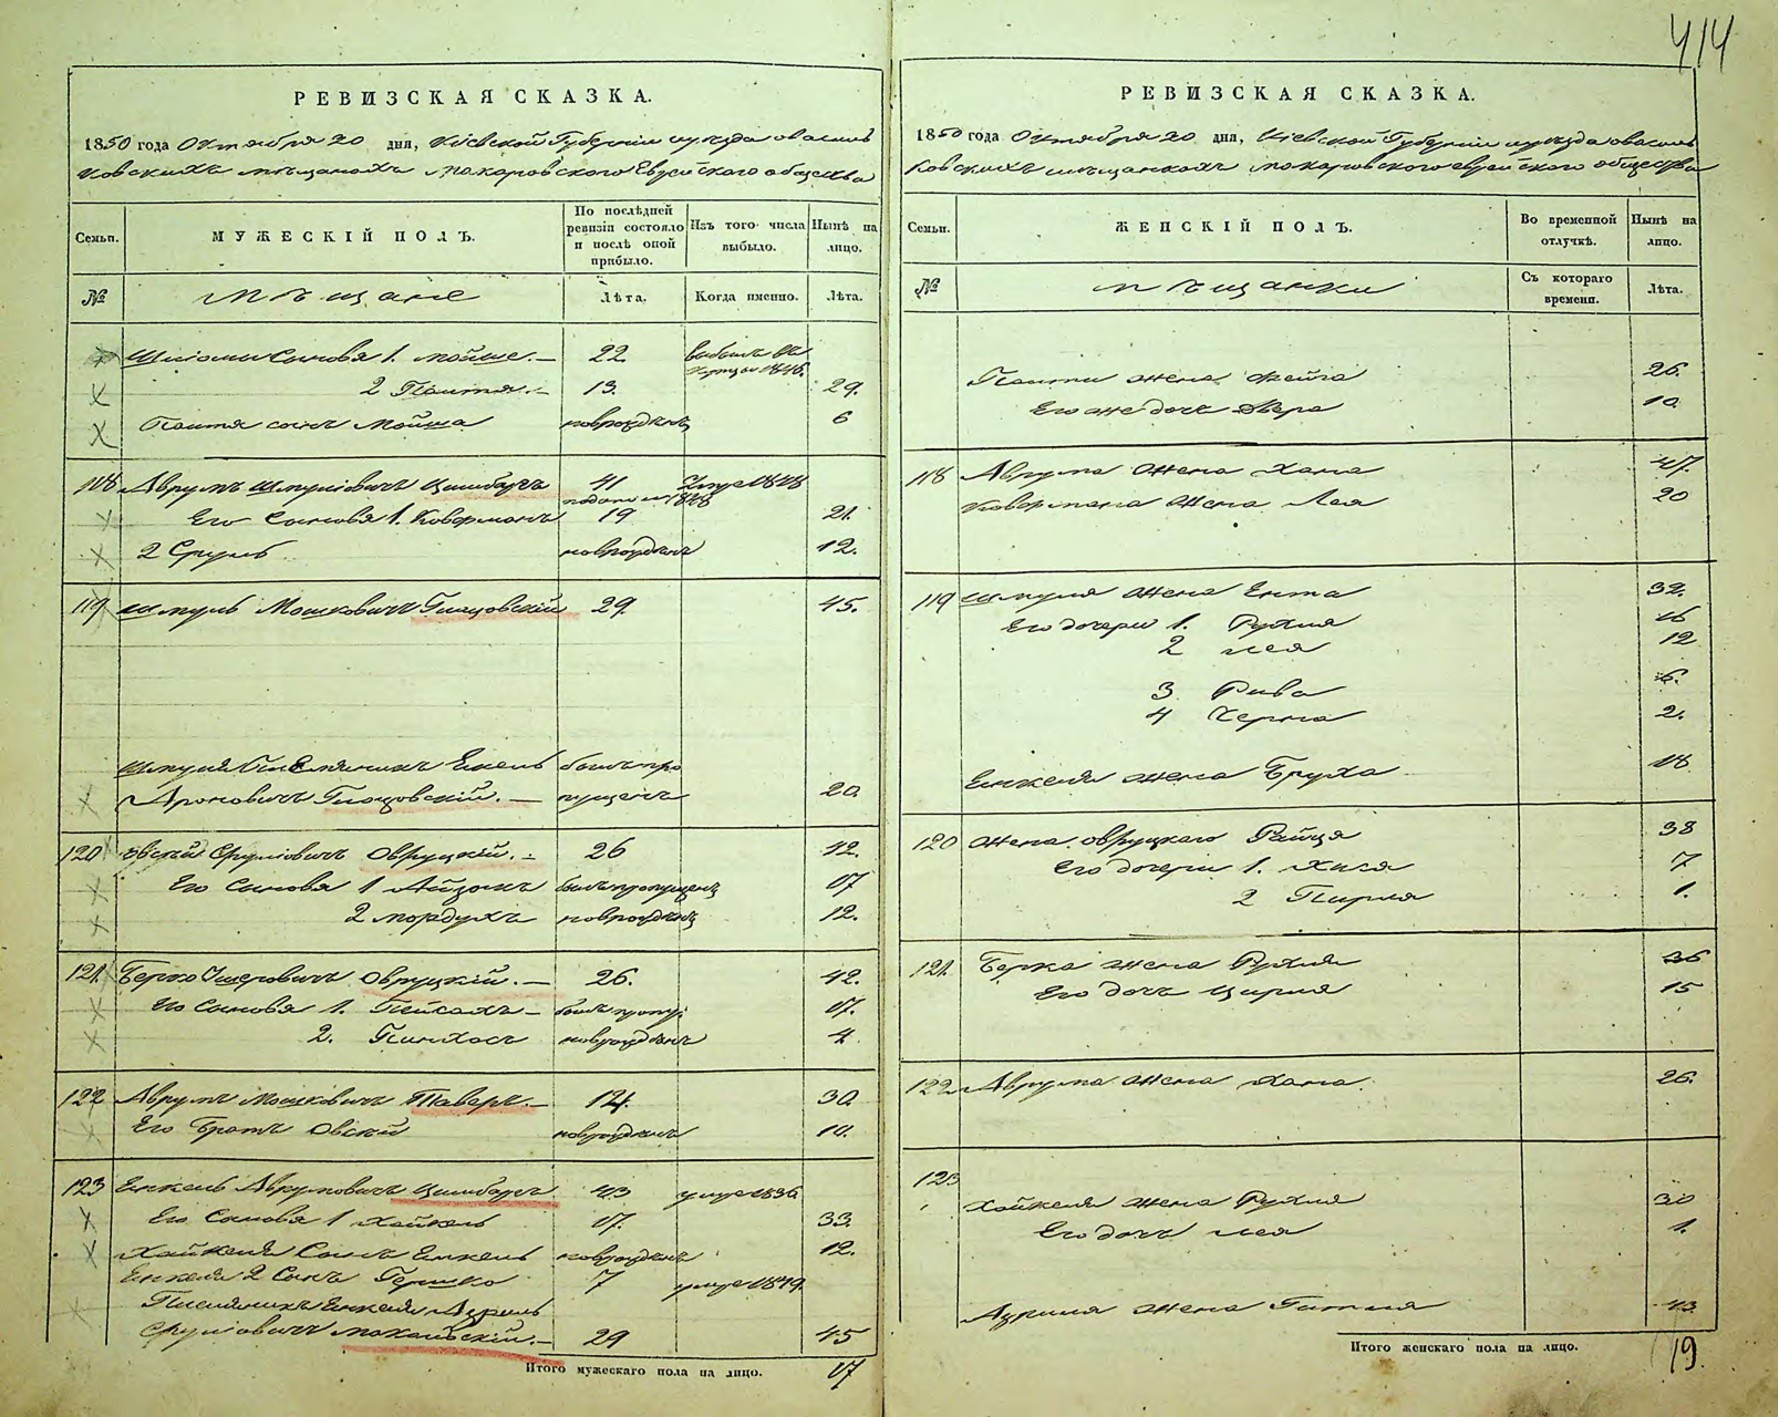 414
РЕВИЗСКАЯ СКАЗКА.
1850 года Октября 20 дня, Кіевской Губерніи уѣзда о василь
ковскихъ мѣщанахъ макаровского Еврейского общества
Семьи.
МУЖЕСКІЙ ПОЛЪ.
По послѣдней ревизіи состояло и послѣ оной прибыло.
Изъ того числа выбыло.
Нынѣ на лицо.
№
мѣщане
Лѣта.
Когда именно.
Лѣта.
Шліомы Сыновья 1. Мойше. — 22 выбылъ въ 1846.
2 Пейтя. — 13. 29.
сынъ Мойша новрожденъ 6
118 Аврумъ Шмуліовичъ Цимбалъ 41 1848
Его Сыновья 1. Коверманъ 19 21.
2 Сруль новрожденъ 12.
119 Шмуль Мошковичъ Глозовскій 29. 45.
Шмуля Племянникъ Енкель былъ про
Ароновичъ Глозовскій. — пущенъ 20.
120 Овсѣй Сруліовичъ Овруцкій. — 26 42.
Его Сыновья 1 Айзикъ былъ пропущенъ 17
2 Мордухъ новрожденъ 12.
121. Берко Ушеровичъ Овруцкій. — 26. 42.
Его Сыновья 1. Пейсахъ — былъ пропу: 17.
2. Пинхосъ новрожденъ 4.
122 Аврумъ Мошковичъ Таверъ. — 14. 30.
Его Братъ Овсѣй новрожденъ 10.
123 Енкель Аврумовичъ Цимбалъ 43 умре 1836
Его Сыновья 1 Хайкель 17. 33.
Хайкеля Сынъ Енкель новрожденъ 12.
Енкеля 2 Сынъ Гершко 7 умре 1849.
Племянникъ Енкеля Азриль
Сруліовичъ — 29 45
Итого мужескаго пола на лицо. 17
РЕВИЗСКАЯ СКАЗКА.
1850 года Октября 20 дня, Кіевской Губерніи уѣзда о василь
ковскихъ мѣщанкахъ макаровского еврейского общества
Семьи.
ЖЕНСКІЙ ПОЛЪ.
Во временной отлучкѣ.
Нынѣ на лицо.
№
мѣщанки
Съ котораго времени.
Лѣта.
жена Фейга 26.
Его же дочь Двера 10.
118 Аврума жена Хана 47.
Ковермана жена Лея 20
119 Шмуля жена Ента 32.
Его дочери 1. Рухля 16
2 Лея 12
3 Рива 6.
4 Черна 2.
Енкеля жена Бруха 18.
120 Жена Овруцкаго Райця 38
Его дочери 1. Хися 7
2 Пирля 1.
121. Берка жена Рухля 36
Его дочь Цирля 15
122 Аврума жена Хана. 26.
123
Хайкеля жена Рухля 30
Его дочь Лея 1.
Азриля жена Гитля 43
Итого женскаго пола на лицо. 19.